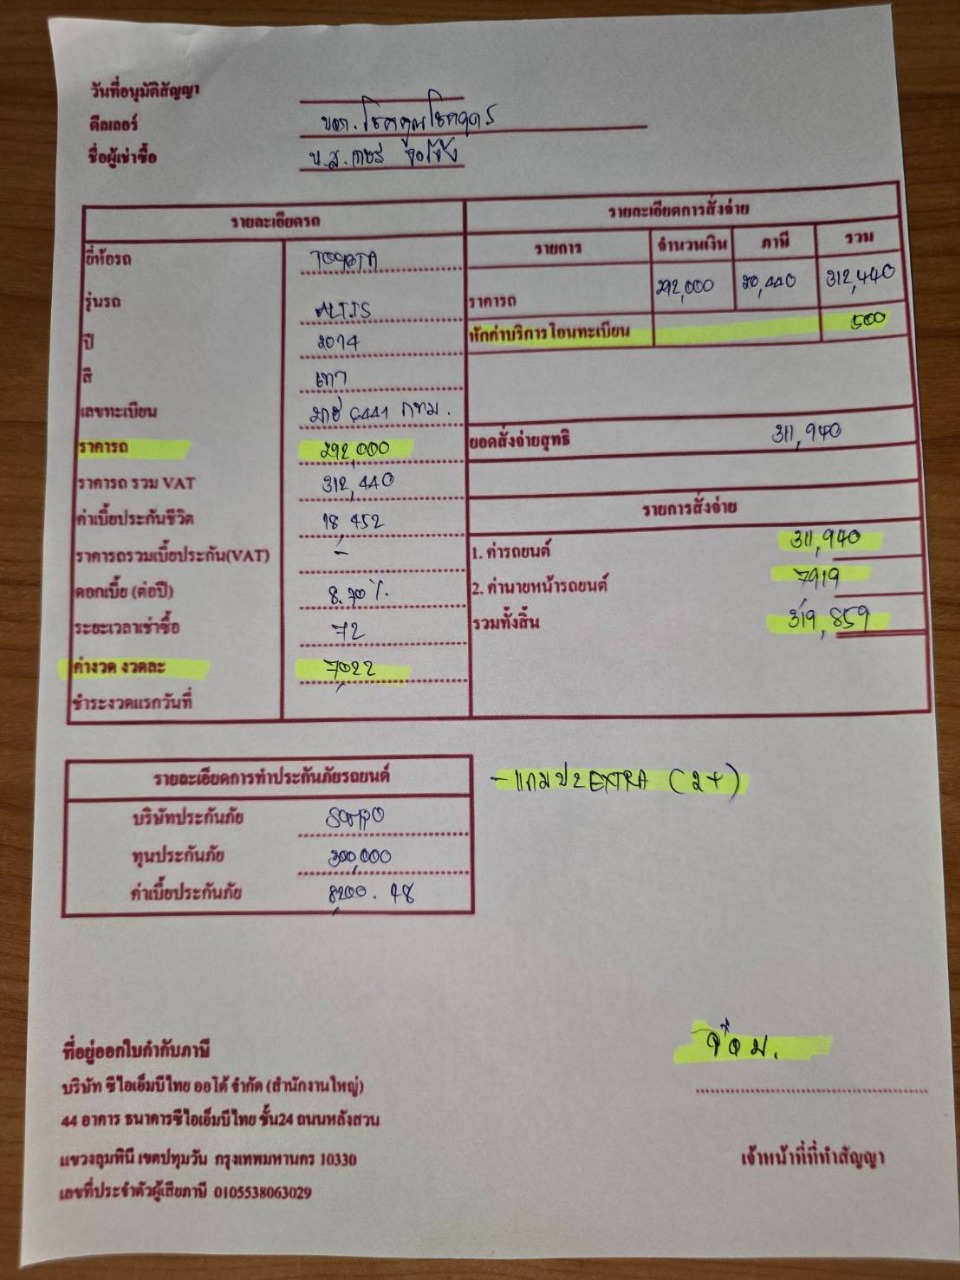 วันที่อนุมัติสัญญา
ดีลเลอร์ บจก.โชคคูณโชคอุดร
ชื่อผู้เช่าซื้อ น.ส.
รายละเอียดรถ
ยี่ห้อรถ TOYOTA
รุ่นรถ ALTIS
ปี 2014
สี เทา
เลขทะเบียน 6441 กทม.
ราคารถ 292,000
ราคารถ รวม VAT 312,440
ค่าเบี้ยประกันชีวิต 18,452
ราคารถรวมเบี้ยประกัน(VAT) -
ดอกเบี้ย (ต่อปี) 8.70%
ระยะเวลาเช่าซื้อ 72
ค่างวด งวดละ 7,022
ชำระงวดแรกวันที่
รายละเอียดการสั่งจ่าย
รายการ จำนวนเงิน ภาษี รวม
ราคารถ 292,000 20,440 312,440
หักค่าบริการโอนทะเบียน 500
ยอดสั่งจ่ายสุทธิ 311,940
รายการสั่งจ่าย
1. ค่ารถยนต์ 311,940
2. ค่านายหน้ารถยนต์ 7919
รวมทั้งสิ้น 319,859
รายละเอียดการทำประกันภัยรถยนต์
บริษัทประกันภัย
ทุนประกันภัย 300,000
ค่าเบี้ยประกันภัย 8,200.48
- แถมป2EXTRA (2+)
ที่อยู่ออกใบกำกับภาษี
บริษัท ซีไอเอ็มบีไทย ออโต้ จำกัด (สำนักงานใหญ่)
44 อาคาร ธนาคารซีไอเอ็มบีไทย ชั้น24 ถนนหลังสวน
แขวงลุมพินี เขตปทุมวัน กรุงเทพมหานคร 10330
เลขที่ประจำตัวผู้เสียภาษี 0105538063029
เจ้าหน้าที่ที่ทำสัญญา